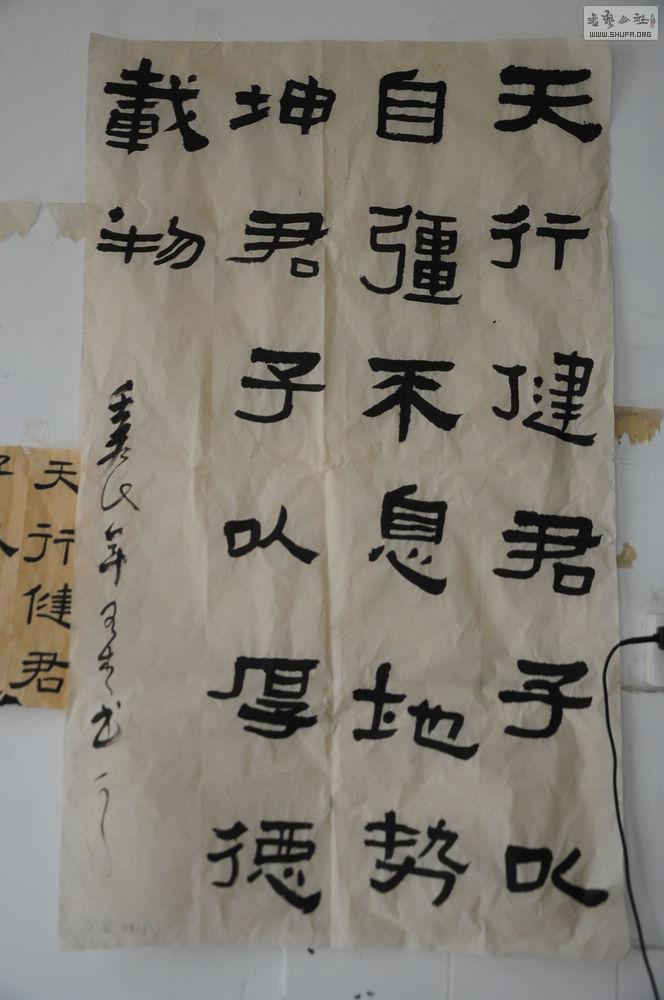 天行健君子以
自彊不息地势
坤君子以厚德
載物
年
书
天行健君
WWW.SHUFA.ORG